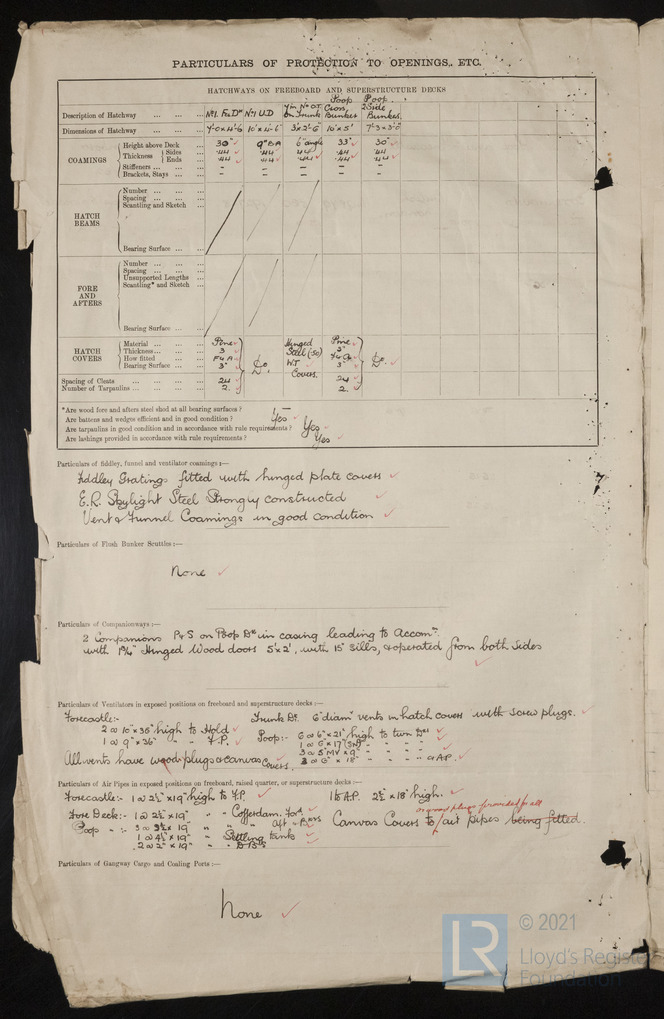 PARTICULARS OF PROTECTION TO OPENINGS, ETC.
HATCHWAYS ON FREEBOARD AND SUPERSTRUCTURE DECKS
Description of Hatchway ... ... ... No1. Fx Dk No1 U.D on Trunk Poop Cross Bunker Poop 2 Side Bunker
Dimensions of Hatchway ... ... ... 10' x 4'-6" 3' x 2'-6" 10' x 5' 7'-3 x 3'-0"
COAMINGS
Height above Deck ... 30" 9" BA 6" angle 33" 30"
Thickness Sides ... .44 .44 .44 .44 .44
Ends ... .44 .44 .44 .44 .44
Stiffeners ... ... ... - - - - -
Brackets, Stays ... ... - - - - -
HATCH BEAMS
Number ... ... ...
Spacing ... ... ...
Scantling and Sketch ...
Bearing Surface ... ...
FORE AND AFTERS
Number ... ... ...
Spacing ... ... ...
Unsupported Lengths ...
Scantling* and Sketch ...
Bearing Surface ... ...
HATCH COVERS
Material ... ... ... Pine Hinged Pine
Thickness... ... ... 3 Do. Steel (.50) 3" Do.
How fitted ... ... F & A W.T. F & A
Bearing Surface ... ... 3" Covers. 3"
Spacing of Cleats ... ... ... ... 24 24
Number of Tarpaulins ... ... ... ... 2. 2.
*Are wood fore and afters steel shod at all bearing surfaces? —
Are battens and wedges efficient and in good condition? Yes
Are tarpaulins in good condition and in accordance with rule requirements? Yes
Are lashings provided in accordance with rule requirements? Yes
Particulars of fiddley, funnel and ventilator coamings :—
Fiddley Gratings fitted with hinged plate covers
E.R. Skylight Steel Strongly constructed
Vent & Funnel Coamings in good condition
Particulars of Flush Bunker Scuttles :—
None
Particulars of Companionways :—
2 Companions P & S on Poop Dk in casing leading to Accomn
with 1¾" Hinged Wood doors 5' x 2', with 15" sills, & operated from both sides
Particulars of Ventilators in exposed positions on freeboard and superstructure decks :—
Forecastle:- Trunk Dk. 6" diam vents in hatch covers with screw plugs.
2 @ 10" x 36" high to Hold Poop:- 6 @ 6" x 21" high to
1 @ 9" x 36" " " F.P.
All vents have wood plugs & canvas covers.
Particulars of Air Pipes in exposed positions on freeboard, raised quarter, or superstructure decks :—
Forecastle:- 1 @ 2½" x 19" high to F.P. 1 to A.P. 2½" x 18" high.
Fore Deck:- 1 @ 2½" x 19" " " Cofferdam Ford.
Canvas Covers to air pipes being fitted.
plugs provided for all
1 @ 4½" x 19" " Settling tanks
2 @ 2" x 19"
Particulars of Gangway Cargo and Coaling Ports :—
None
LR
© 2021
Lloyd's Register
Foundation